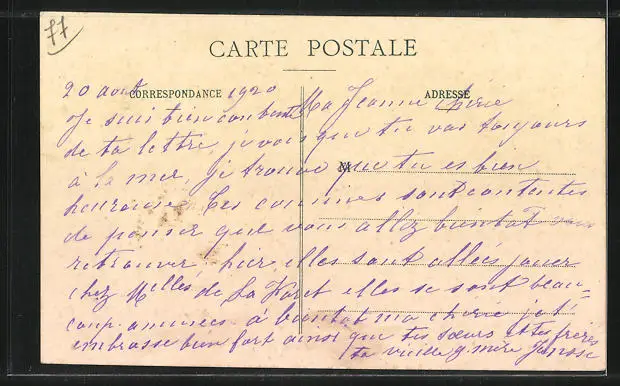 77
CARTE POSTALE
CORRESPONDANCE
ADRESSE
20 aout 1920 Ma Jeanne chérie
Je suis bien contente
de ta lettre, je vois que tu vas toujours
à la mer, je trouve que tu es bien
M
heureuse. Tes sont contentes
de penser que vous allez bientot vous
retrouver, hier, elles sont allées jouer
chez Melles de La Foret elles se sont beau-
coup amusées à bientot ma chérie je t'
embrasse bien fort ainsi que tes sœurs et tes frères
ta vieille g. mère